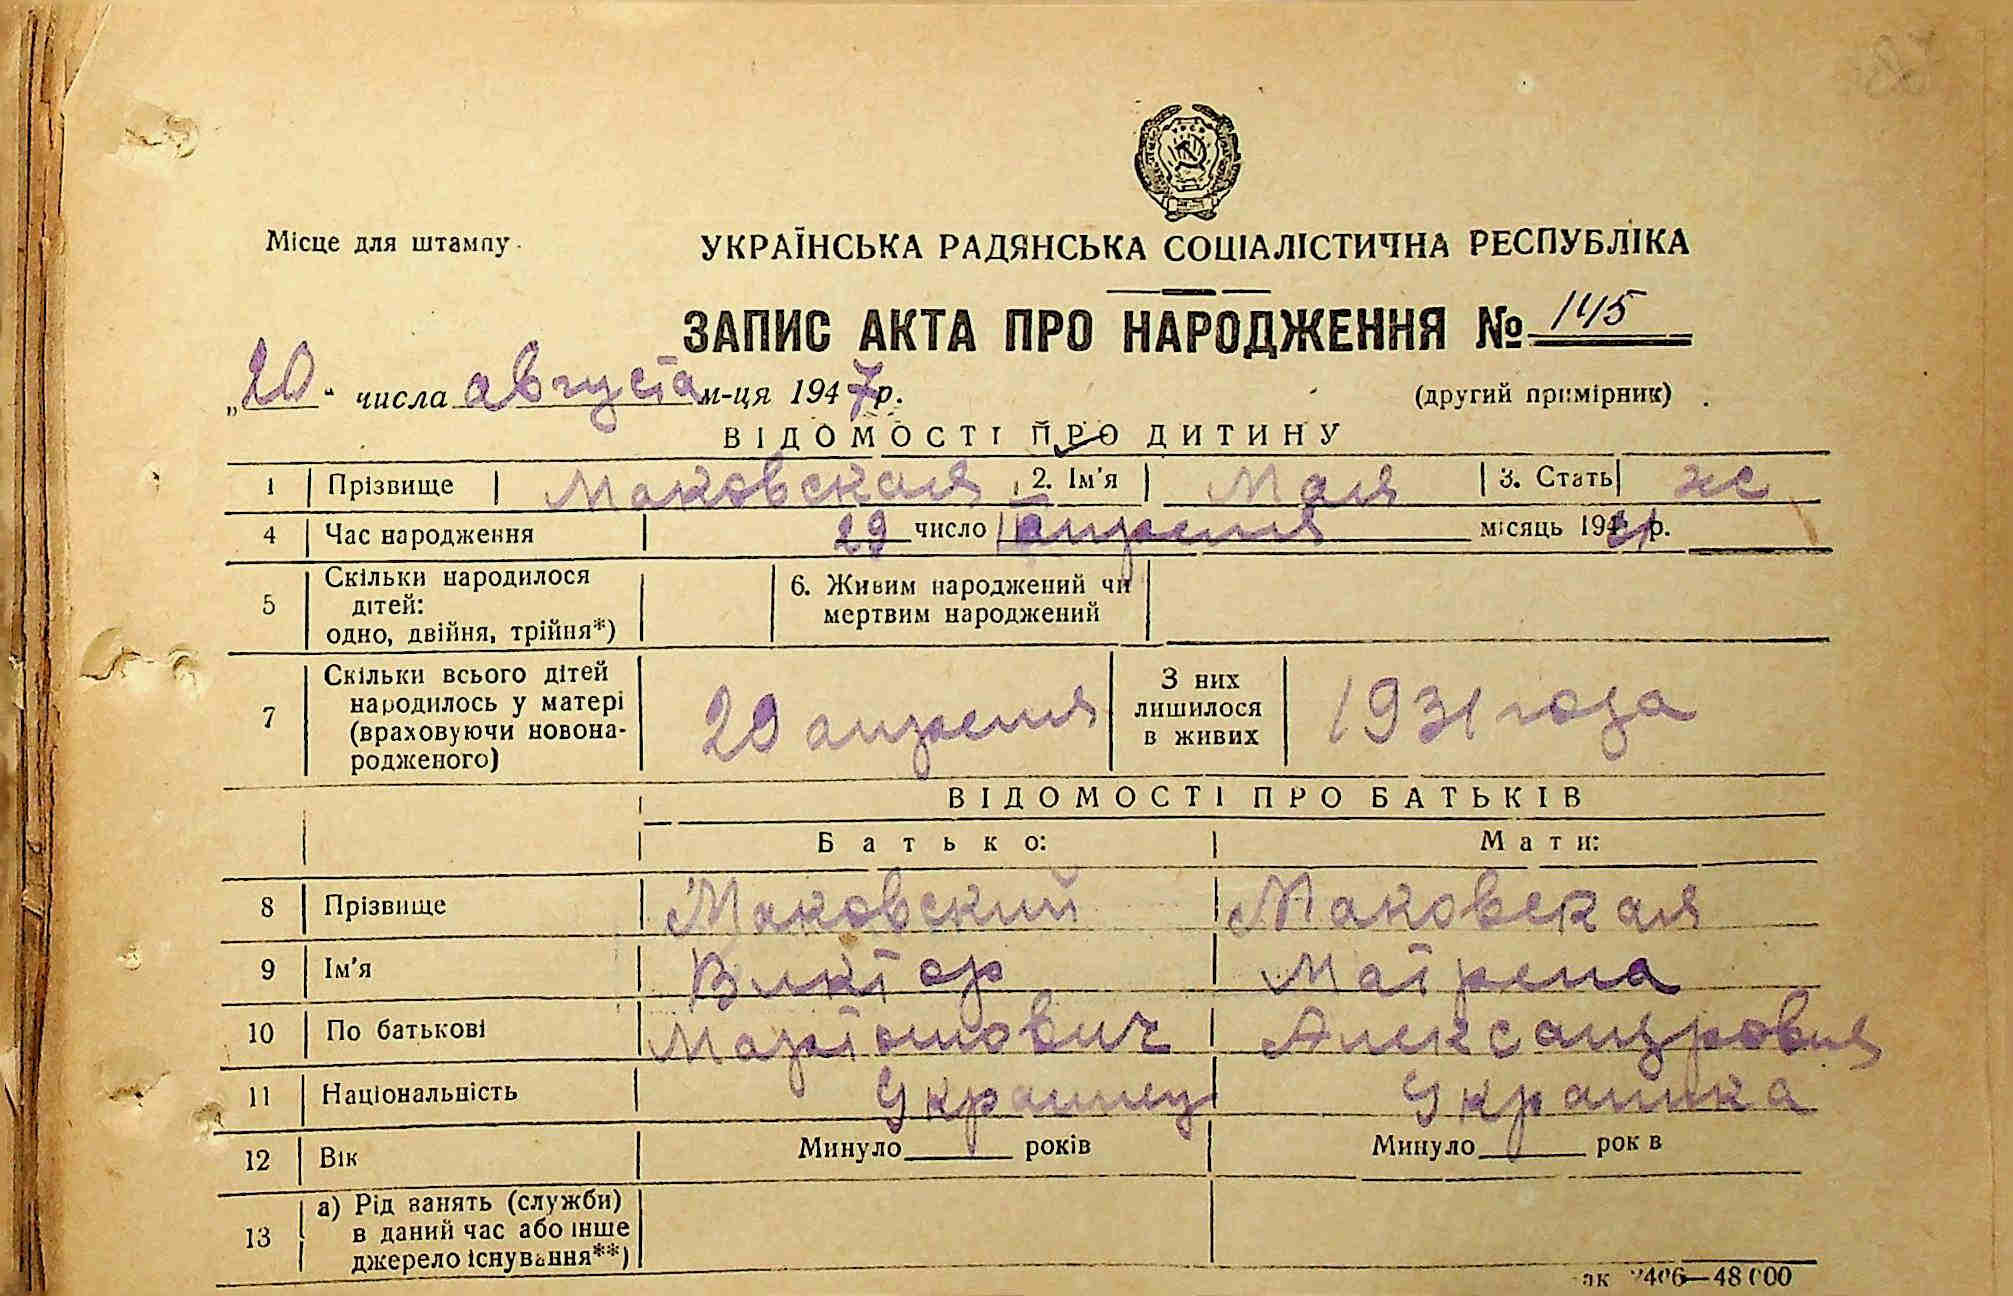 Місце для штампу
УКРАЇНСЬКА РАДЯНСЬКА СОЦІАЛІСТИЧНА РЕСПУБЛІКА
ЗАПИС АКТА ПРО НАРОДЖЕННЯ № 145
„20“ числа августа м-ця 1947 р. (другий примірник)
ВІДОМОСТІ ПРО ДИТИНУ
1 Прізвище Маковская 2. Ім'я Мая 3. Стать ж
4 Час народження 29 число апреля місяць 1931 р.
5 Скільки народилося дітей: одно, двійня, трійня*) 6. Живим народжений чи мертвим народжений
7 Скільки всього дітей народилось у матері (враховуючи новонародженого) 29 апреля З них лишилося в живих 1931 года
ВІДОМОСТІ ПРО БАТЬКІВ
Батько: Мати:
8 Прізвище Маковский Маковская
9 Ім'я Виктор Матрена
10 По батькові Александровна
11 Національність Украинец Украинка
12 Вік Минуло років Минуло рок в
13 а) Рід занять (служби) в даний час або інше джерело існування**)
ак 2406—48 000